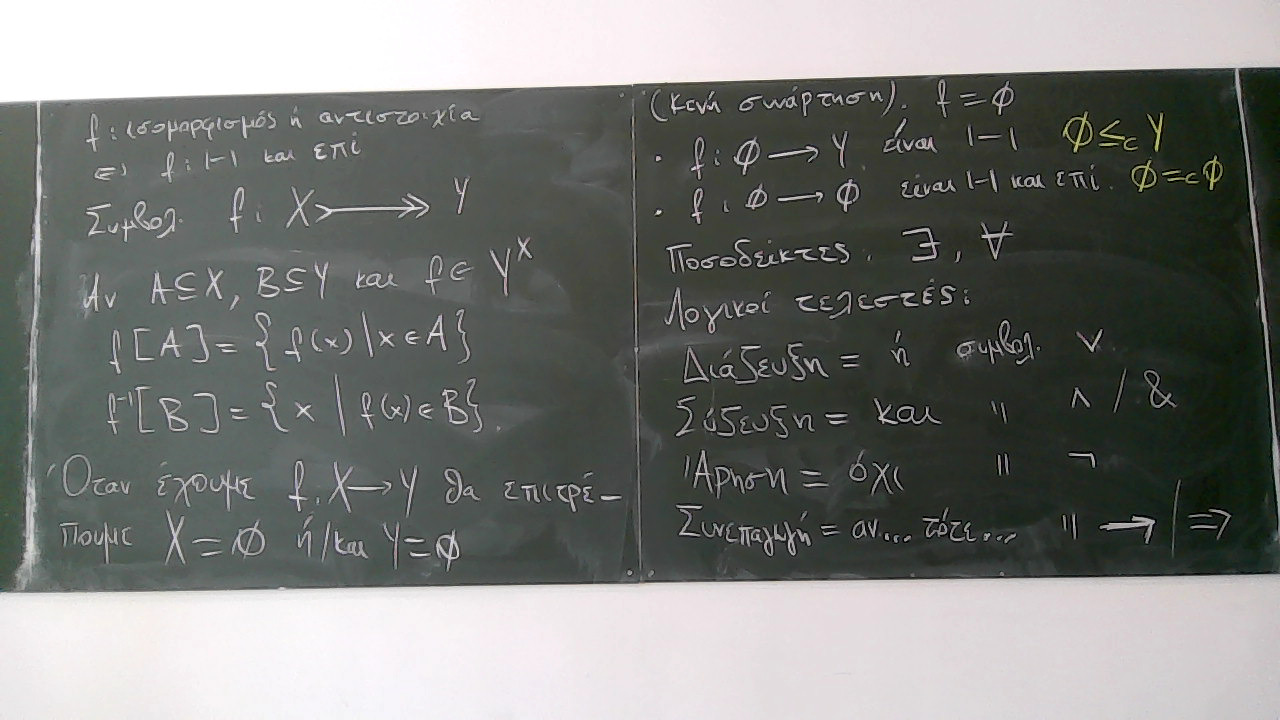 f : ισομορφισμός ή αντιστοιχία
⇔ f : 1-1 και επί
Συμβολ. f : X ↣↠ Y
Αν A⊆X, B⊆Y και f ∈ Y^X
f[A] = {f(x) | x ∈ A}
f⁻¹[B] = {x | f(x) ∈ B}.
Όταν έχουμε f : X → Y θα επιτρέ-
πουμε X = ∅ ή/και Y = ∅
(κενή συνάρτηση). f = ∅
· f : ∅ → Y είναι 1-1 ∅ ≤c Y
· f : ∅ → ∅ είναι 1-1 και επί. ∅ =c ∅
Ποσοδείκτες. ∃, ∀
Λογικοί τελεστές:
Διάζευξη = ή συμβολ. ∨
Σύζευξη = και " ∧ / &
Άρηση = όχι " ¬
Συνεπαγωγή = αν... τότε... " → | ⇒